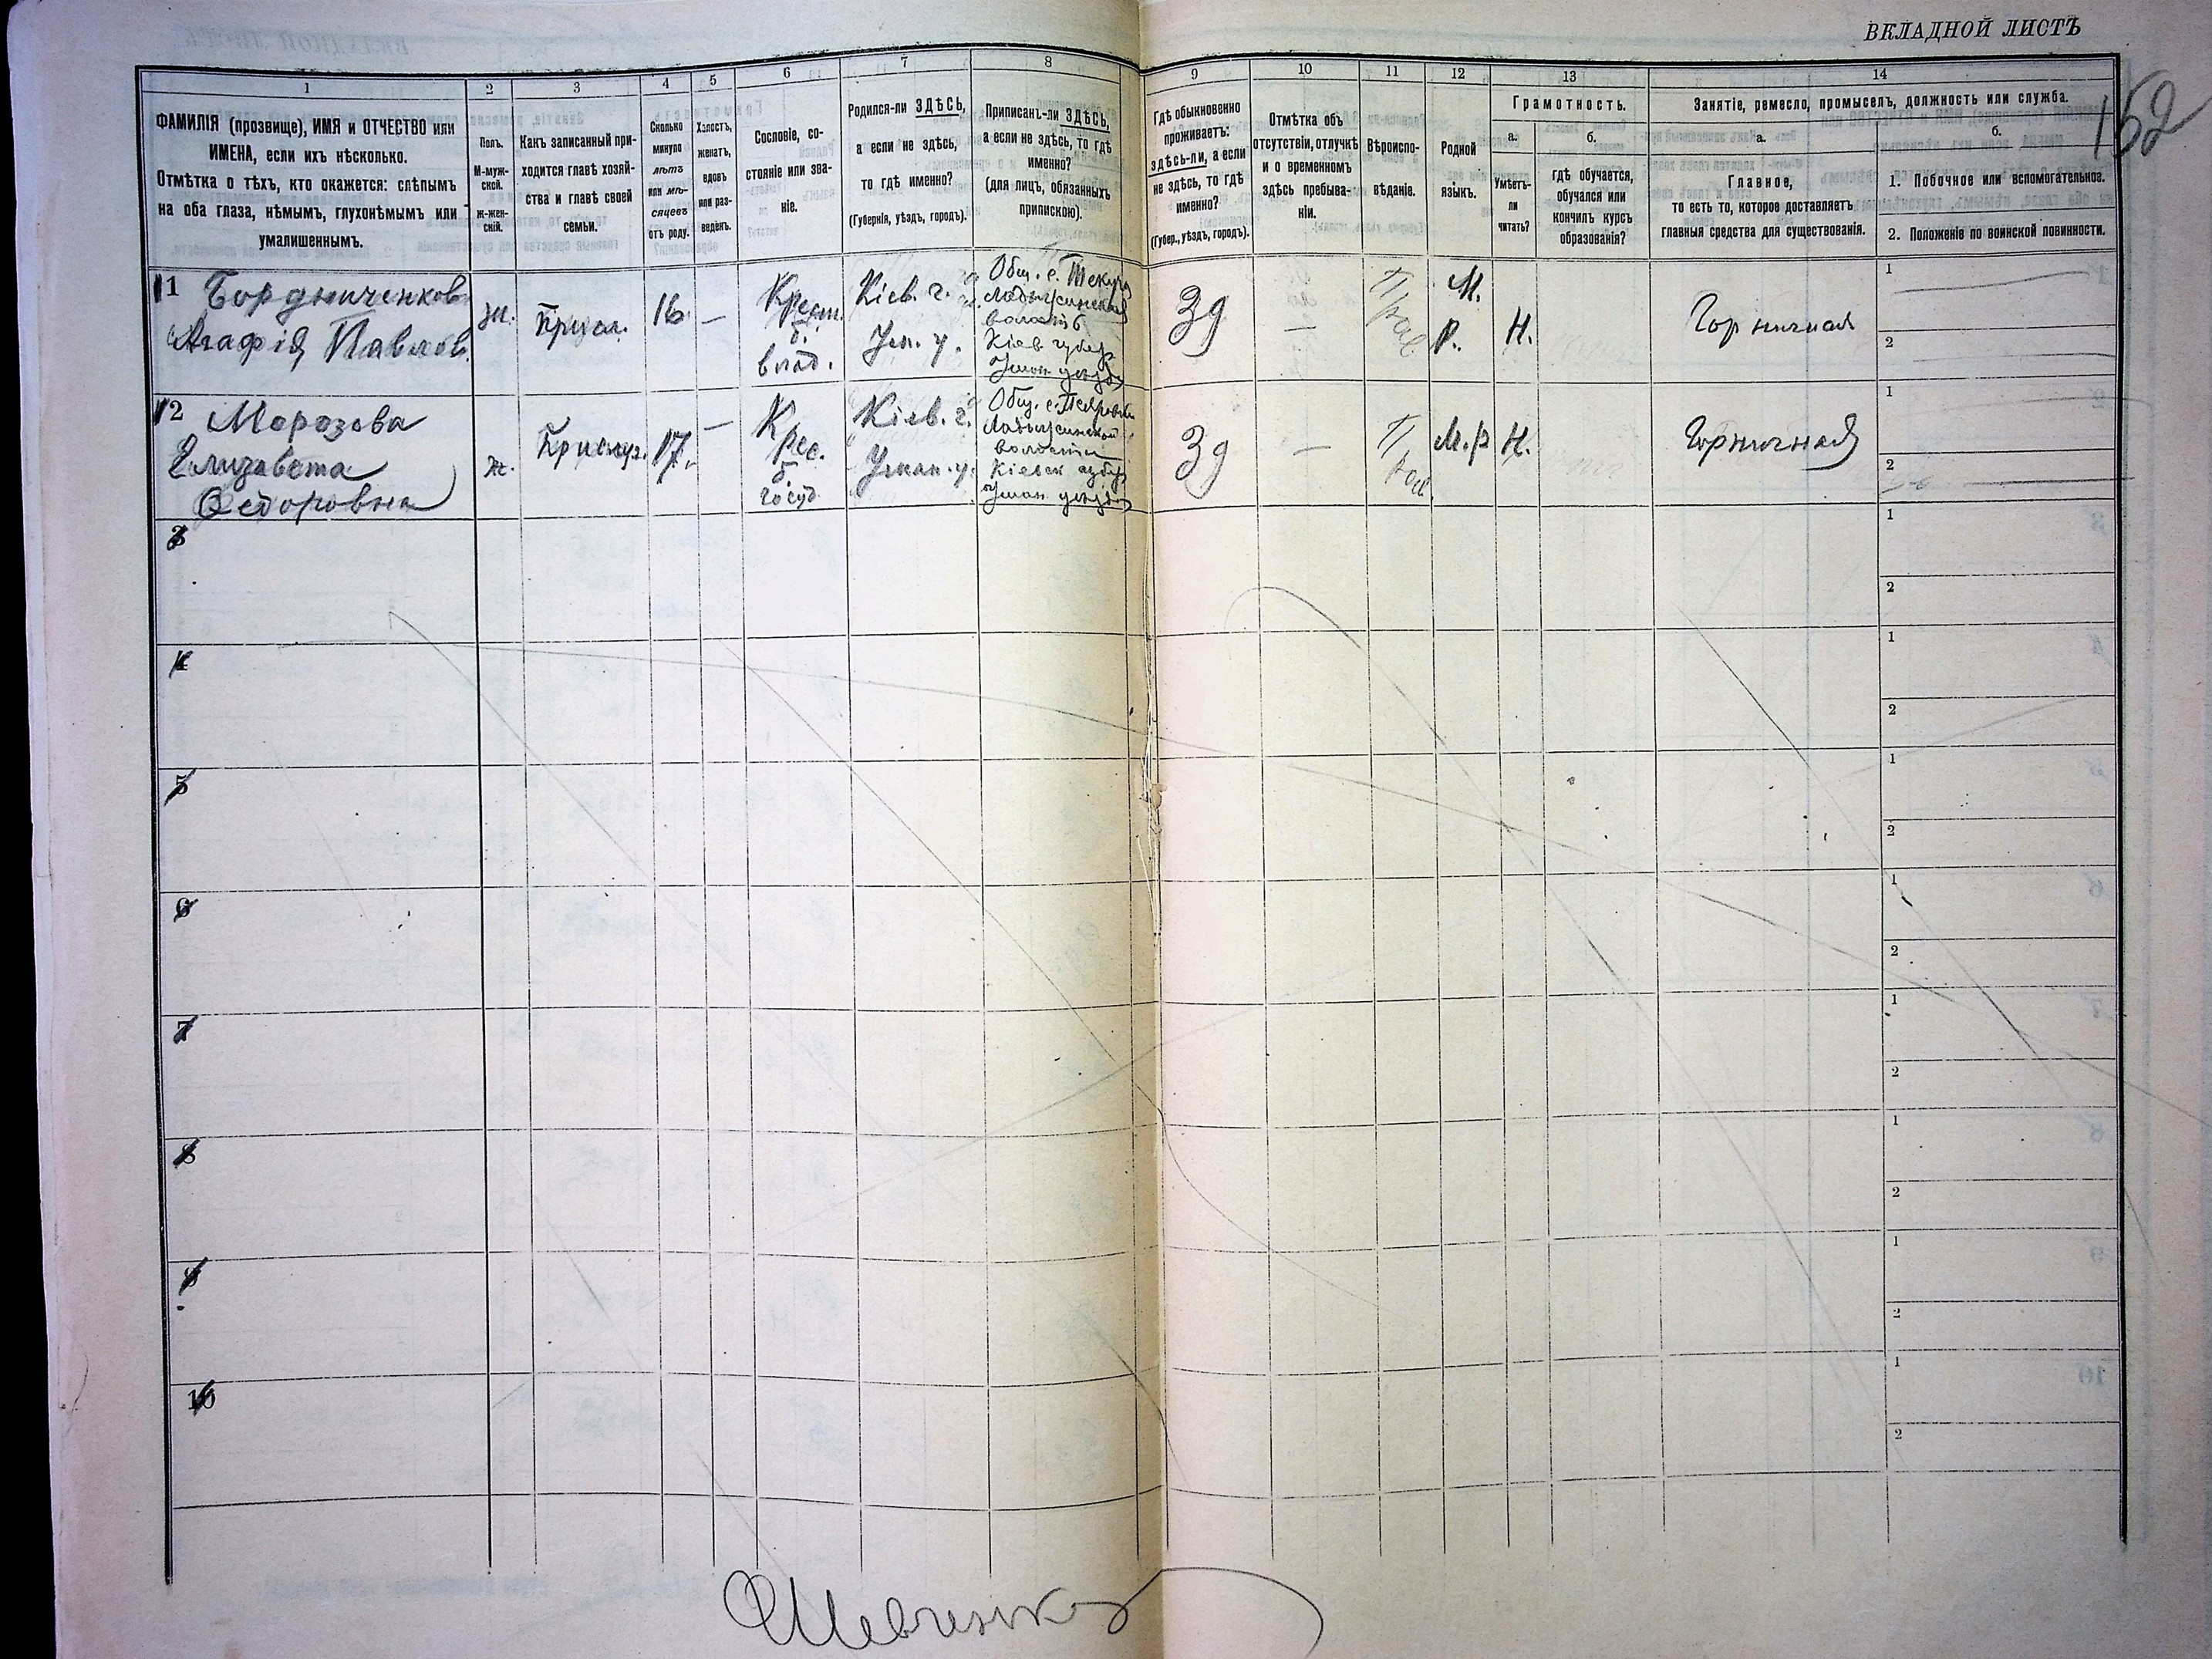 ВКЛАДНОЙ ЛИСТЪ
152
1
2
3
4
5
6
7
8
9
10
11
12
13
14
ФАМИЛІЯ (прозвище), ИМЯ и ОТЧЕСТВО или
ИМЕНА, если ихъ нѣсколько.
Отмѣтка о тѣхъ, кто окажется: слѣпымъ
на оба глаза, нѣмымъ, глухонѣмымъ или
умалишеннымъ.
Полъ.
М-муж-
ской.
ж-жен-
скій.
Какъ записанный при-
ходится главѣ хозяй-
ства и главѣ своей
семьи.
Сколько
минуло
лѣтъ
или мѣ-
сяцевъ
отъ роду.
Холостъ,
женатъ,
вдовъ
или раз-
веденъ.
Сословіе, со-
стояніе или зва-
ніе.
Родился-ли ЗДѢСЬ,
а если не здѣсь,
то гдѣ именно?
(Губернія, уѣздъ, городъ).
Приписанъ-ли ЗДѢСЬ,
а если не здѣсь, то гдѣ
именно?
(для лицъ, обязанныхъ
припискою).
Гдѣ обыкновенно
проживаетъ:
здѣсь-ли, а если
не здѣсь, то гдѣ
именно?
(Губер., уѣздъ, городъ).
Отмѣтка объ
отсутствіи, отлучкѣ
и о временномъ
здѣсь пребыва-
ніи.
Вѣроиспо-
вѣданіе.
Родной
языкъ.
Грамотность.
а.
Умѣетъ-
ли
читать?
б.
гдѣ обучается,
обучался или
кончилъ курсъ
образованія?
Занятіе, ремесло, промыселъ, должность или служба.
а.
Главное,
то есть то, которое доставляетъ
главныя средства для существованія.
б.
1. Побочное или вспомогательное.
2. Положеніе по воинской повинности.
11
Агафія Павлов.
ж.
16
—
Крест.
б.
влад.
Кіев. г.
Ум. у.
Общ. с.
волости
Кіев. губер.
Уман. уѣзда
Зд
—
Прав.
М.
Р.
Н.
Горничная
1
2
12 Морозова
Елизавета
Ѳедоровна
ж.
Прислуг.
17
—
Крес.
б.
госуд.
Кіев. г.
Уман. у.
Общ. с.
волости
Кіевск. губер.
Уман. уѣзда
Зд
—
Прав.
М. р
Н.
Горничная
1
2
3
1
2
4
1
2
5
1
2
6
1
2
7
1
2
8
1
2
9
1
2
10
1
2
Шевченко